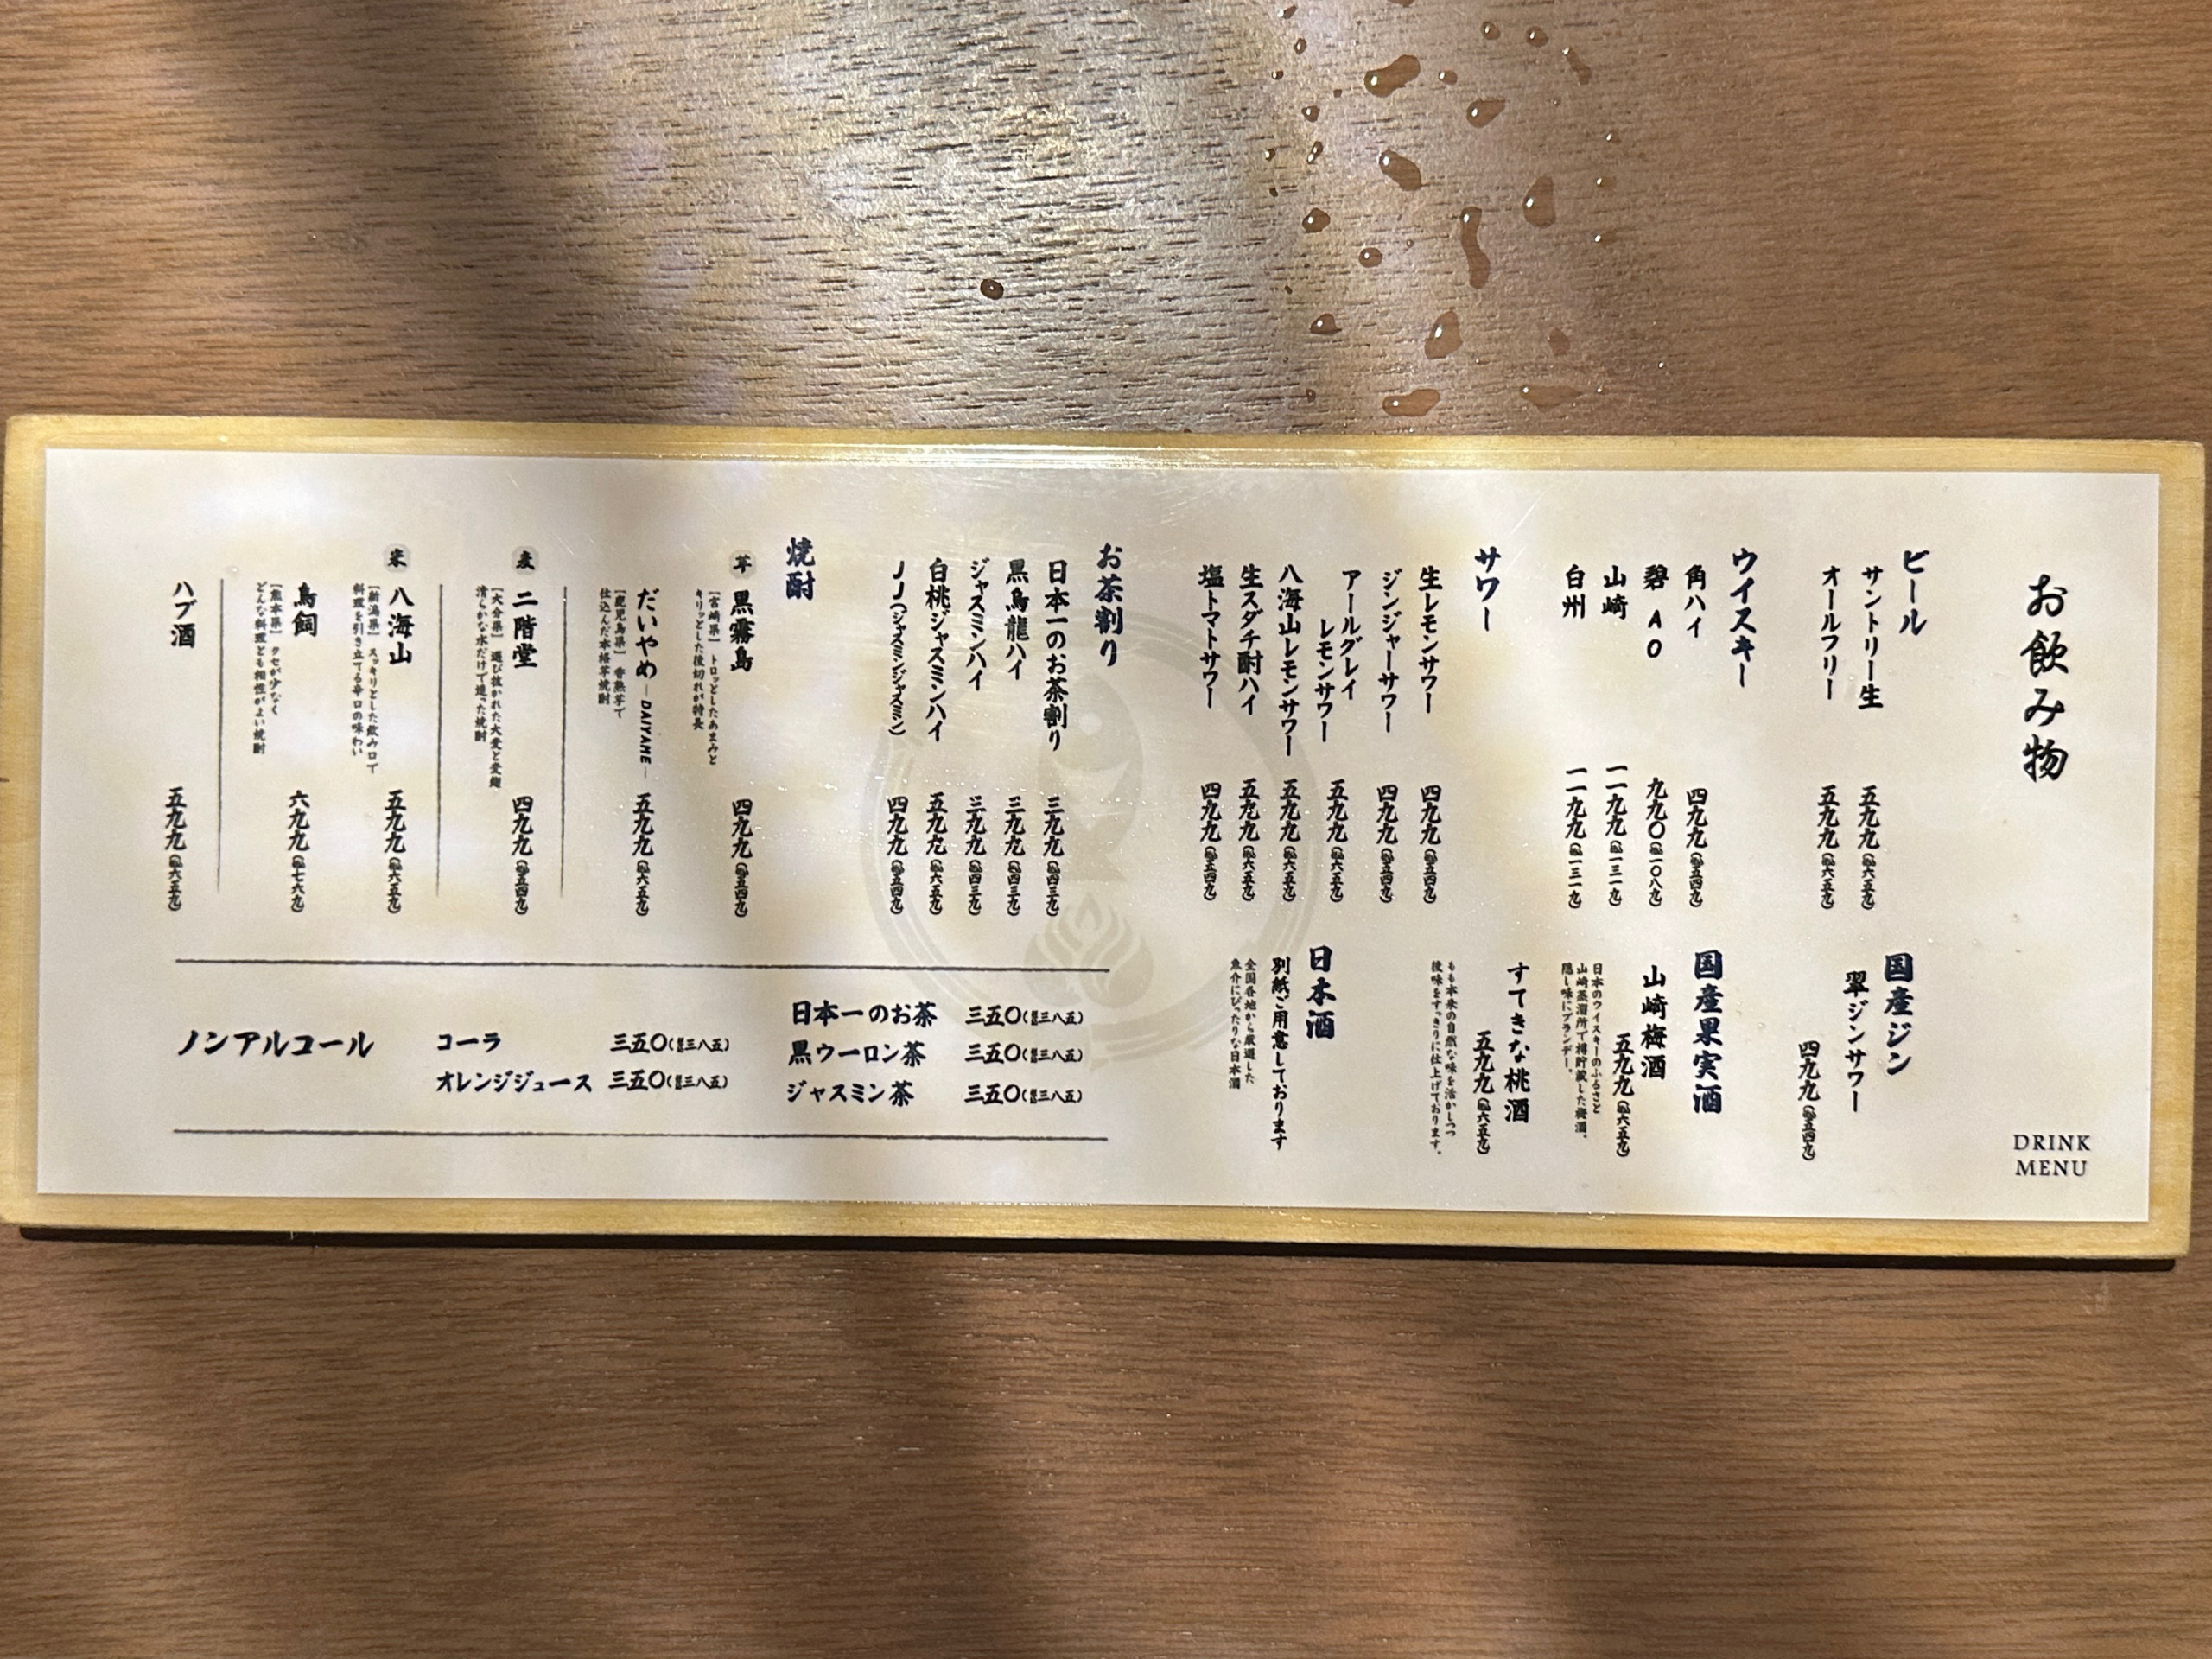 お飲み物
DRINK
MENU
ビール
サントリー生 五九九(税込六五九)
オールフリー 五九九(税込六五九)
国産ジン
翠ジンサワー
四九九(税込五四九)
ウイスキー
角ハイ 四九九(税込五四九)
碧 AO 九九〇(税込一〇八九)
山崎 一一九九(税込一三一九)
白州 一一九九(税込一三一九)
国産果実酒
山崎梅酒
五九九(税込六五九)
日本のウイスキーのふるさと
山崎蒸溜所で樽貯蔵した梅酒。
隠し味にブランデー。
すてきな桃酒
五九九(税込六五九)
もも本来の自然な味を活かしつつ
後味をすっきりに仕上げております。
サワー
生レモンサワー 四九九(税込五四九)
ジンジャーサワー 四九九(税込五四九)
アールグレイ
レモンサワー 五九九(税込六五九)
八海山レモンサワー 五九九(税込六五九)
生スダチ酎ハイ 五九九(税込六五九)
塩トマトサワー 四九九(税込五四九)
日本酒
別紙ご用意しております
全国各地から厳選した
魚介にぴったりな日本酒
お茶割り
日本一のお茶割り 三九九(税込四三九)
黒烏龍ハイ 三九九(税込四三九)
ジャスミンハイ 三九九(税込四三九)
白桃ジャスミンハイ 五九九(税込六五九)
JJ(ジャスミンジャスミン) 四九九(税込五四九)
焼酎
芋 黒霧島 四九九(税込五四九)
[宮崎県] トロッとしたあまみと
キリッとした後切れが特長
だいやめ ―DAIYAME― 五九九(税込六五九)
[鹿児島県] 香熟芋で
仕込んだ本格芋焼酎
麦 二階堂 四九九(税込五四九)
[大分県] 選び抜かれた大麦と麦麹
清らかな水だけで造った焼酎
米 八海山 五九九(税込六五九)
[新潟県] スッキリとした飲み口で
料理を引き立てる辛口の味わい
鳥飼 六九九(税込七六九)
[熊本県] クセが少なく
どんな料理とも相性がよい焼酎
ハブ酒 五九九(税込六五九)
ノンアルコール
コーラ 三五〇(税込三八五)
オレンジジュース 三五〇(税込三八五)
日本一のお茶 三五〇(税込三八五)
黒ウーロン茶 三五〇(税込三八五)
ジャスミン茶 三五〇(税込三八五)